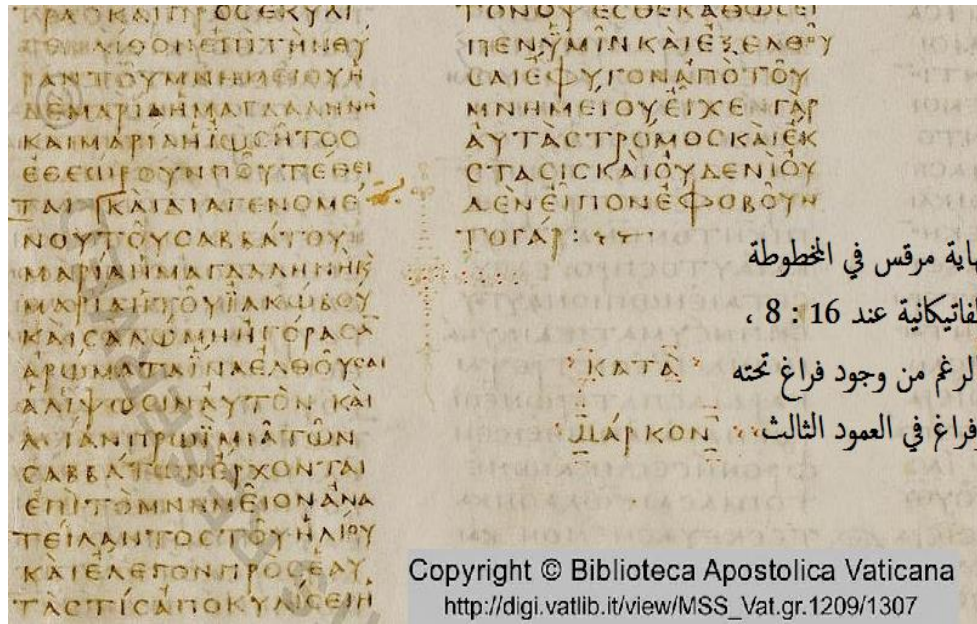 ΤΡΑϹΚΑΙΠΡΟϹΕΚΥΛΙ
ϹΕΝΛΙΘΟΝΕΠΙΤΗΝΘΥ
ΡΑΝΤΟΥΜΝΗΜΕΙΟΥΗ
ΔΕΜΑΡΙΑΗΜΑΓΔΑΛΗΝΗ
ΚΑΙΜΑΡΙΑΗΙΩϹΗΤΟϹ
ΕΘΕΩΡΟΥΝΠΟΥΤΕΘΕΙ
ΤΑΙ ΚΑΙΔΙΑΓΕΝΟΜΕ
ΝΟΥΤΟΥϹΑΒΒΑΤΟΥ
ΜΑΡΙΑΗΜΑΓΔΑΛΗΝΗΚ
ΜΑΡΙΑΗΤΟΥΙΑΚΩΒΟΥ
ΚΑΙϹΑΛΩΜΗΗΓΟΡΑϹΑ
ΑΡΩΜΑΤΑΙΝΑΕΛΘΟΥϹΑΙ
ΑΛΙΨΩϹΙΝΑΥΤΟΝΚΑΙ
ΛΙΑΝΠΡΩΙΜΙΑΤΩΝ
ϹΑΒΒΑΤΩΝΕΡΧΟΝΤΑΙ
ΕΠΙΤΟΜΝΗΜΕΙΟΝΑΝΑ
ΤΕΙΛΑΝΤΟϹΤΟΥΗΛΙΟΥ
ΚΑΙΕΛΕΓΟΝΠΡΟϹΕΑΥ
ΤΑϹΤΙϹΑΠΟΚΥΛΙϹΕΙΗ
ΤΟΝΟΥΕϹΘΕΚΑΘΩϹΕΙ
ΠΕΝΥΜΙΝΚΑΙΕΞΕΛΘΟΥ
ϹΑΙΕΦΥΓΟΝΑΠΟΤΟΥ
ΜΝΗΜΕΙΟΥΕΙΧΕΝΓΑΡ
ΑΥΤΑϹΤΡΟΜΟϹΚΑΙΕΚ
ϹΤΑϹΙϹΚΑΙΟΥΔΕΝΙΟΥ
ΔΕΝΕΙΠΟΝΕΦΟΒΟΥΝ
ΤΟΓΑΡ:
ΚΑΤΑ
ΜΑΡΚΟΝ
مرقس في المخطوطة
عند 16 : 8 ،
من وجود فراغ تحته
فراغ في العمود الثالث
Copyright © Biblioteca Apostolica Vaticana
http://digi.vatlib.it/view/MSS_Vat.gr.1209/1307